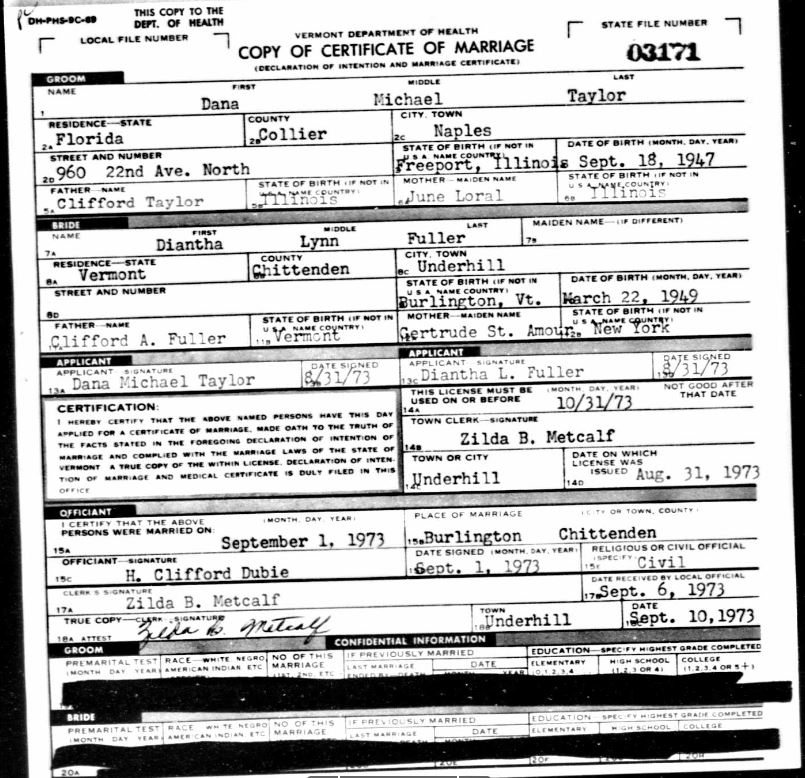 DH-PHS-9C-69
THIS COPY TO THE
DEPT. OF HEALTH
LOCAL FILE NUMBER
VERMONT DEPARTMENT OF HEALTH
COPY OF CERTIFICATE OF MARRIAGE
(DECLARATION OF INTENTION AND MARRIAGE CERTIFICATE)
STATE FILE NUMBER
03171
GROOM
NAME FIRST MIDDLE LAST
1 Dana Michael Taylor
RESIDENCE—STATE COUNTY CITY, TOWN
2A Florida 2B Collier 2C Naples
STREET AND NUMBER STATE OF BIRTH (IF NOT IN U S A, NAME COUNTRY) DATE OF BIRTH (MONTH, DAY, YEAR)
2D 960 22nd Ave. North Freeport, Illinois Sept. 18, 1947
FATHER—NAME STATE OF BIRTH (IF NOT IN U.S.A. NAME COUNTRY) MOTHER—MAIDEN NAME STATE OF BIRTH (IF NOT IN U S A, NAME COUNTRY)
5A Clifford Taylor 5B Illinois 6A June Loral 6B Illinois
BRIDE
NAME FIRST MIDDLE LAST MAIDEN NAME—(IF DIFFERENT)
7A Diantha Lynn Fuller 7B
RESIDENCE—STATE COUNTY CITY, TOWN
8A Vermont Chittenden 8C Underhill
STREET AND NUMBER STATE OF BIRTH (IF NOT IN U S A, NAME COUNTRY) DATE OF BIRTH (MONTH, DAY, YEAR)
8D Burlington, Vt. March 22, 1949
FATHER—NAME STATE OF BIRTH (IF NOT IN U S A, NAME COUNTRY) MOTHER—MAIDEN NAME STATE OF BIRTH (IF NOT IN U.S.A. NAME COUNTRY)
Clifford A. Fuller 11B Vermont Gertrude St. Amour 12B New York
APPLICANT APPLICANT
APPLICANT SIGNATURE DATE SIGNED APPLICANT SIGNATURE DATE SIGNED
13A Dana Michael Taylor 8/31/73 13C Diantha L. Fuller 8/31/73
CERTIFICATION:
I HEREBY CERTIFY THAT THE ABOVE NAMED PERSONS HAVE THIS DAY
APPLIED FOR A CERTIFICATE OF MARRIAGE, MADE OATH TO THE TRUTH OF
THE FACTS STATED IN THE FOREGOING DECLARATION OF INTENTION OF
MARRIAGE AND COMPLIED WITH THE MARRIAGE LAWS OF THE STATE OF
VERMONT A TRUE COPY OF THE WITHIN LICENSE, DECLARATION OF INTEN-
TION OF MARRIAGE AND MEDICAL CERTIFICATE IS DULY FILED IN THIS
OFFICE
THIS LICENSE MUST BE USED ON OR BEFORE (MONTH, DAY, YEAR) NOT GOOD AFTER THAT DATE
14A 10/31/73
TOWN CLERK—SIGNATURE
14B Zilda B. Metcalf
TOWN OR CITY DATE ON WHICH LICENSE WAS ISSUED
14C Underhill 14D Aug. 31, 1973
OFFICIANT
I CERTIFY THAT THE ABOVE PERSONS WERE MARRIED ON: (MONTH, DAY, YEAR) PLACE OF MARRIAGE (CITY OR TOWN, COUNTY)
15A September 1, 1973 15B Burlington Chittenden
OFFICIANT—SIGNATURE DATE SIGNED (MONTH, DAY, YEAR) RELIGIOUS OR CIVIL OFFICIAL (SPECIFY)
15C H. Clifford Dubie Sept. 1, 1973 15F Civil
CLERK'S SIGNATURE DATE RECEIVED BY LOCAL OFFICIAL
17A Zilda B. Metcalf 17B Sept. 6, 1973
TRUE COPY—CLERK-SIGNATURE TOWN DATE
18A ATTEST Zilda B. Metcalf 18B Underhill Sept. 10, 1973
GROOM CONFIDENTIAL INFORMATION
PREMARITAL TEST (MONTH DAY YEAR) RACE—WHITE, NEGRO, AMERICAN INDIAN, ETC NO OF THIS MARRIAGE IF PREVIOUSLY MARRIED EDUCATION—SPECIFY HIGHEST GRADE COMPLETED
LAST MARRIAGE DATE ELEMENTARY HIGH SCHOOL (1,2,3 OR 4) COLLEGE (1,2,3,4 OR 5+)
BRIDE
PREMARITAL TEST (MONTH DAY YEAR) RACE WHITE NEGRO AMERICAN INDIAN, ETC NO OF THIS MARRIAGE IF PREVIOUSLY MARRIED EDUCATION—SPECIFY HIGHEST GRADE COMPLETED
LAST MARRIAGE DATE ELEMENTARY HIGH SCHOOL COLLEGE
20A 20E 20F 20H